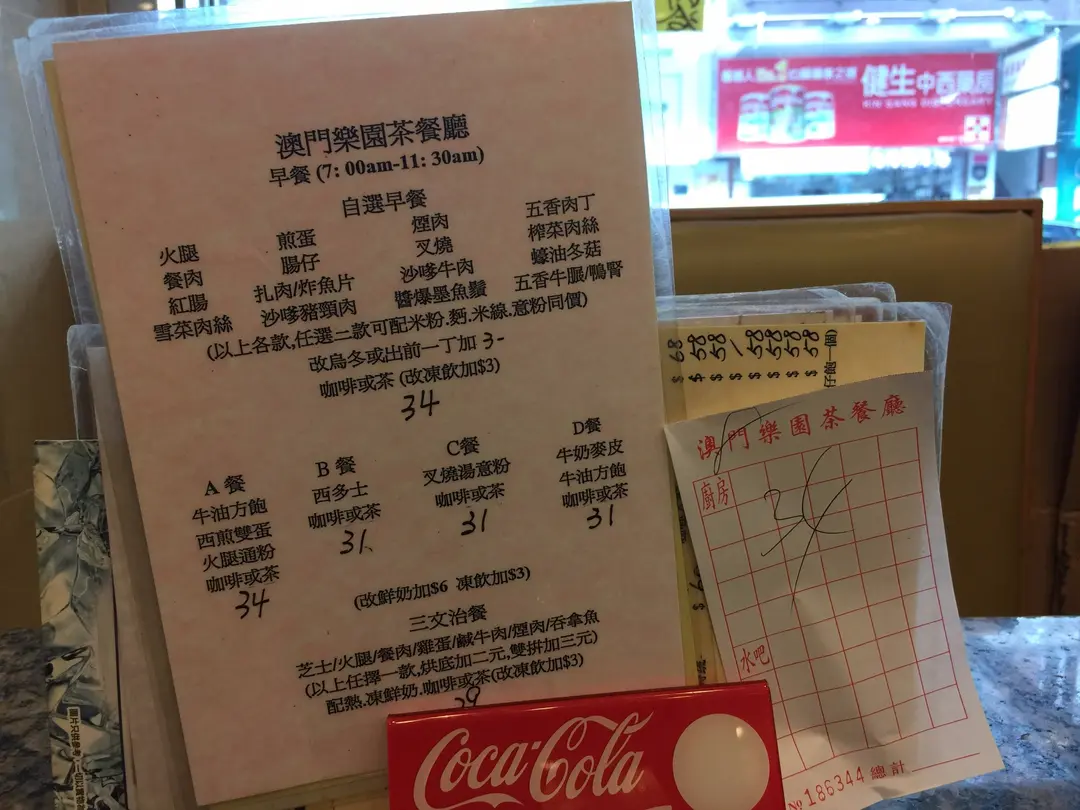 澳門樂園茶餐廳
早餐 (7: 00am-11: 30am)
自選早餐
火腿 煎蛋 煙肉 五香肉丁
餐肉 腸仔 叉燒 榨菜肉絲
紅腸 扎肉/炸魚片 沙嗲牛肉 蠔油冬菇
雪菜肉絲 沙嗲豬頸肉 醬爆墨魚鬚 五香牛脤/鴨腎
(以上各款,任選二款可配米粉.麪.米線.意粉同價)
改烏冬或出前一丁加 3-
咖啡或茶 (改凍飲加$3)
34
A 餐
牛油方飽
西煎雙蛋
火腿通粉
咖啡或茶
34
B 餐
西多士
咖啡或茶
31
C餐
叉燒湯意粉
咖啡或茶
31
D餐
牛奶麥皮
牛油方飽
咖啡或茶
31
(改鮮奶加$6 凍飲加$3)
三文治餐
芝士/火腿/餐肉/雞蛋/鹹牛肉/煙肉/吞拿魚
(以上任擇一款,烘底加二元,雙拼加三元)
配熱.凍鮮奶.咖啡或茶(改凍飲加$3)
Coca-Cola
健生中西藥房
$ 68
$ 58
$ 58/
$ 58
$ 58
$ 58
$ 58
澳門樂園茶餐廳
廚房
34
水吧
№ 186344 總計